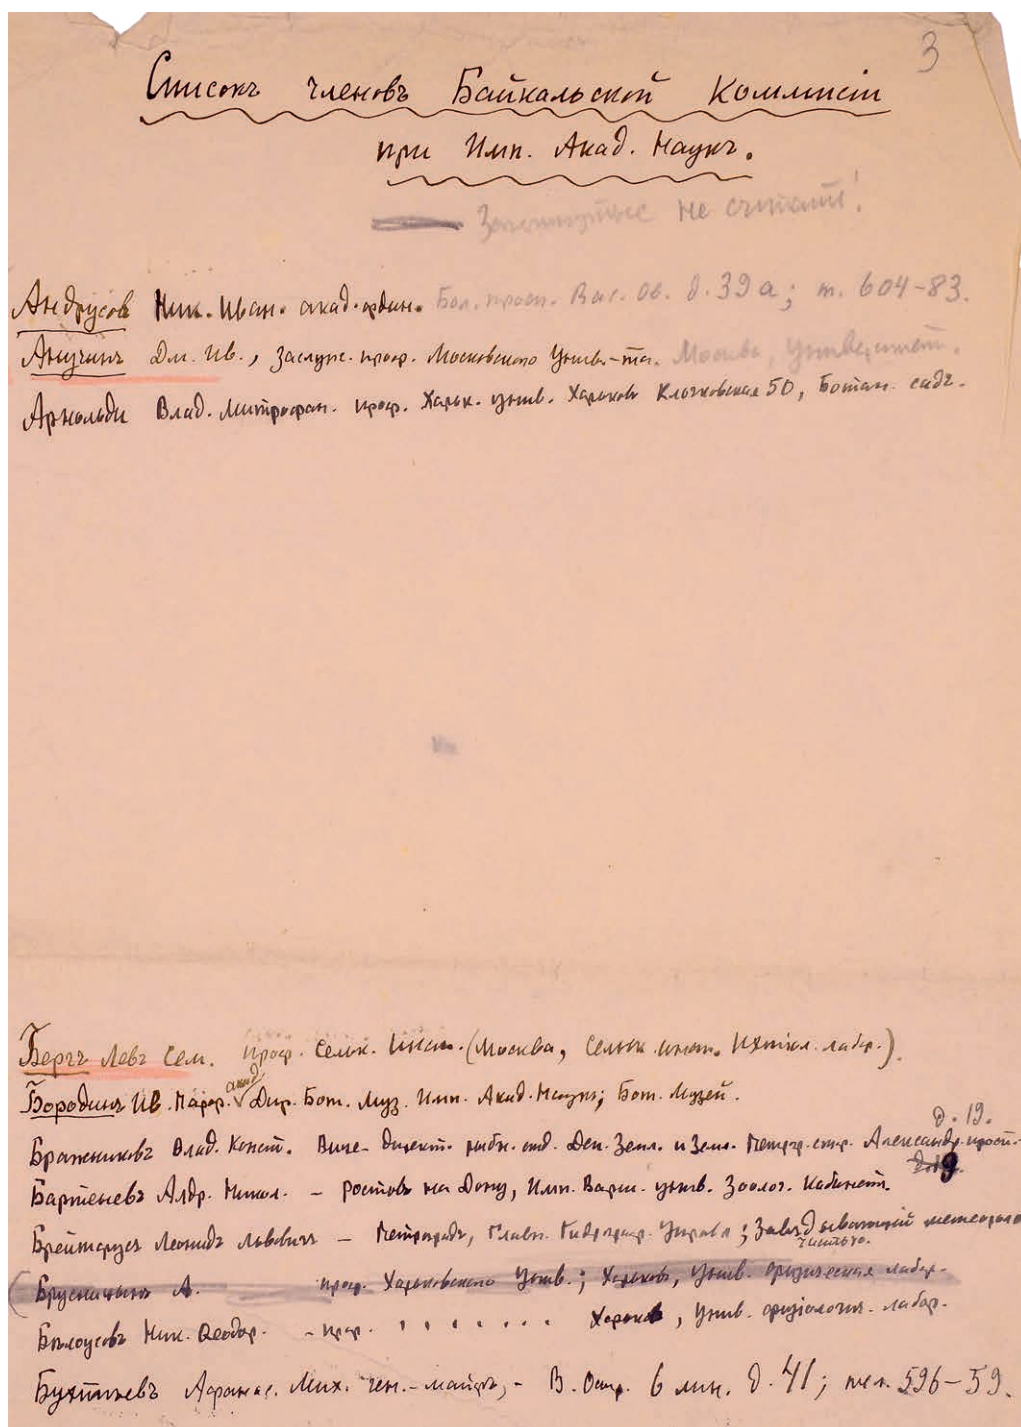 3
Списокъ членовъ Байкальской Коммисіи
при Имп. Акад. Наукъ.
Зачеркнутые не считать!
Андрусовъ Ник. Иван. акад. ордин. Бол. просп. Вас. Ов. д. 39а; т. 604-83.
Анучинъ Дм. Ив., заслуж. проф. Московскаго Унив-та. Москва, Университет.
Арнольди Влад. Митрофан. проф. Харьк. унив. Харьковъ Клочковская 50, Ботан. садъ.
Бергъ Левъ Сем. проф. Сельк. Инст. (Москва, Сельск. инст. Ихтіол. лабор.).
акад.
Бородинъ Ив. Парф. Дир. Бот. Муз. Имп. Акад. Наукъ; Бот. Музей.
д. 19.
Бражниковъ Влад. Конст. Вице-директ. рыбн. отд. Деп. Земл. и Земл. Петрогр. стор. Александр. просп.
Бартеневъ Алдр. Никол. – Ростовъ на Дону, Имп. Варш. унив. Зоолог. Кабинетъ.
Брейтфусъ Леонидъ Львовичъ – Петроградъ, Главн. Гидрограф. Управл.; Завѣдывающій метеорол.
частью.
(Брусницынъ А. проф. Харьковскаго Унив.; Харьковъ, Унив. физическая лабор.
Бѣлоусовъ Ник. Ѳеодор. – проф. " " Харьков, Унив. физіологич. лабор.
Бухтѣевъ Афанас. Мих. ген.-майоръ, – В. Остр. 6 лин. д. 41; тел. 596-59.